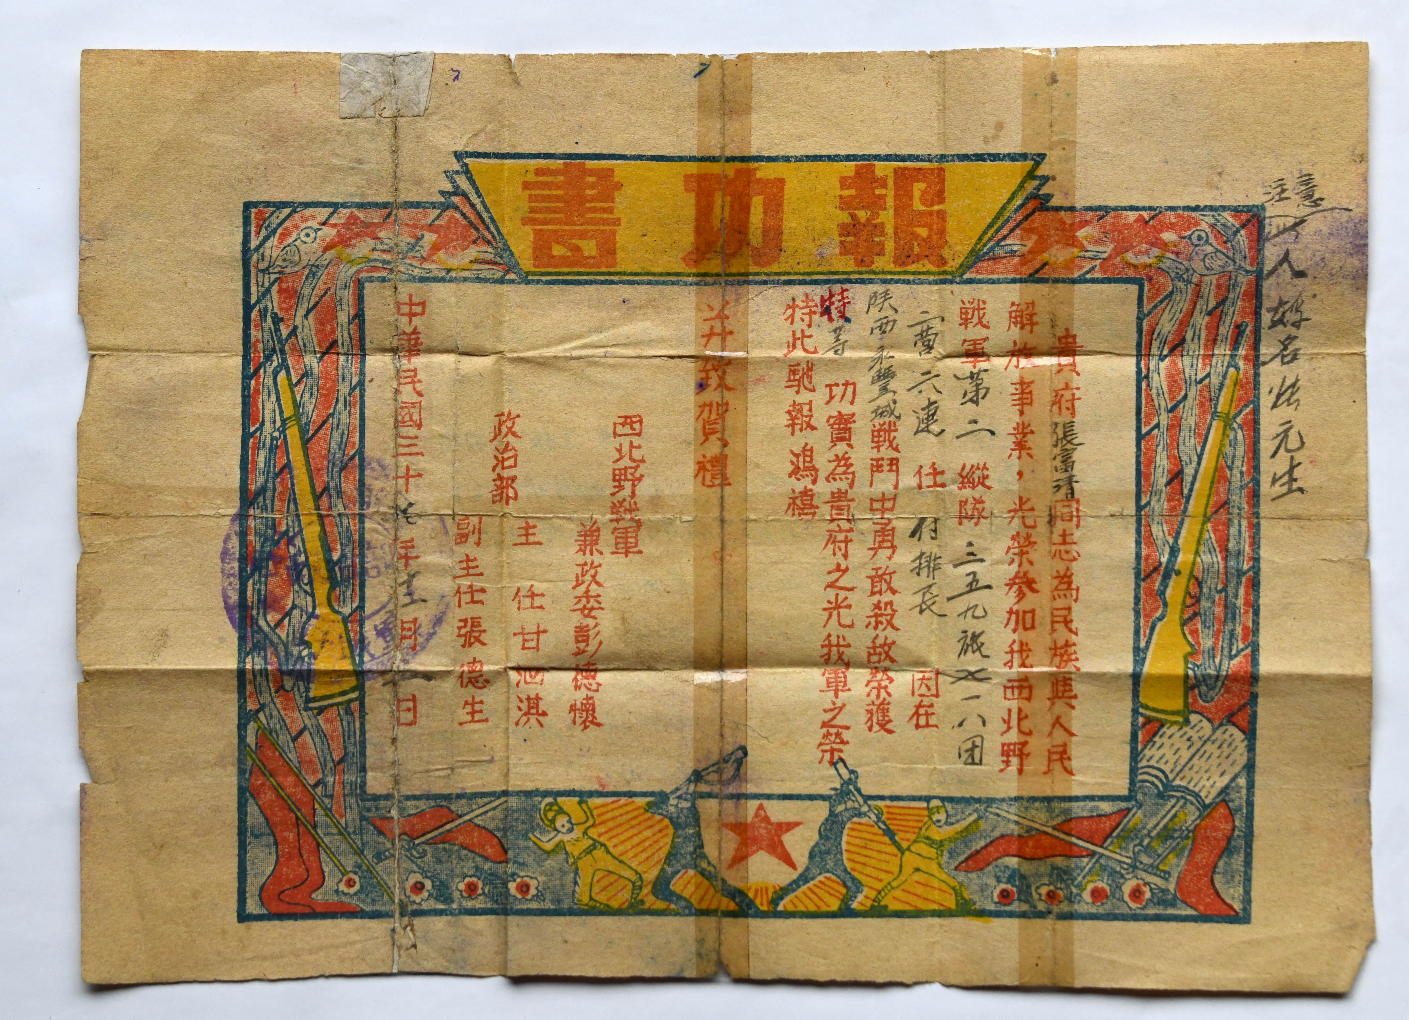 報功書
注意
人姓名
生
貴府張富清同志為民族與人民
解放事業，光榮參加我西北野
戰軍第二縱隊三五九旅七一八团
二营六連 任 付排長 因在
陕西永豐城戰鬥中勇敢殺敵榮獲
特等 功實為貴府之光我軍之榮
特此馳報鴻禧
并致賀禮
西北野戰軍
兼政委彭德懷
政治部
主 任甘泗淇
副主任張德生
中華民國三十七年 月 日